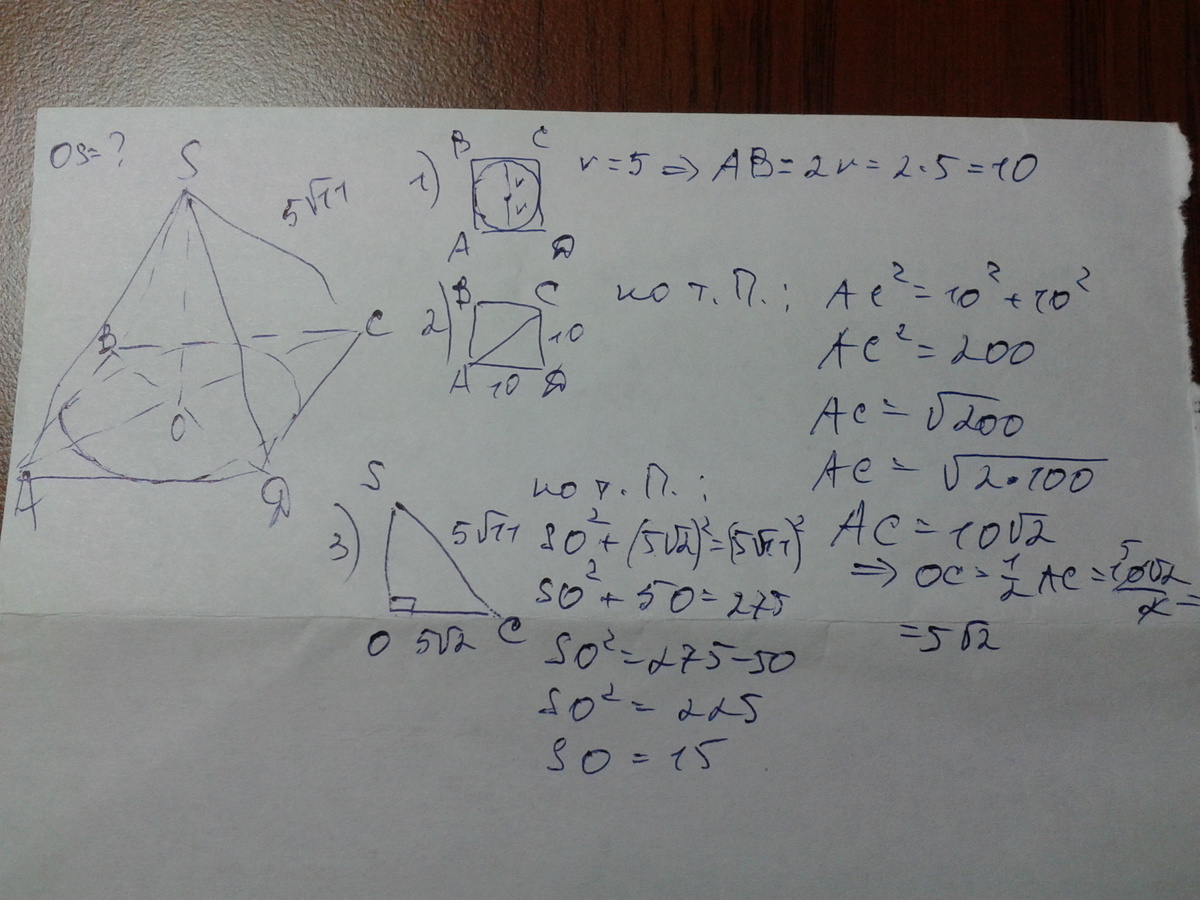 OS=?
S
5√11
B
C
O
A
D
1)
B C
r
r
A D
r=5 ⇒ AB=2r=2·5=10
2)
B C
10
A 10 D
по т. П.:
AC²=10²+10²
AC²=200
AC=√200
AC=√2·100
AC=10√2
⇒ OC=1/2 AC=10√2/2=
5
=5√2
3)
S
5√11
O 5√2 C
по т. П.:
SO²+(5√2)²=(5√11)²
SO²+50=275
SO²=275-50
SO²=225
SO=15